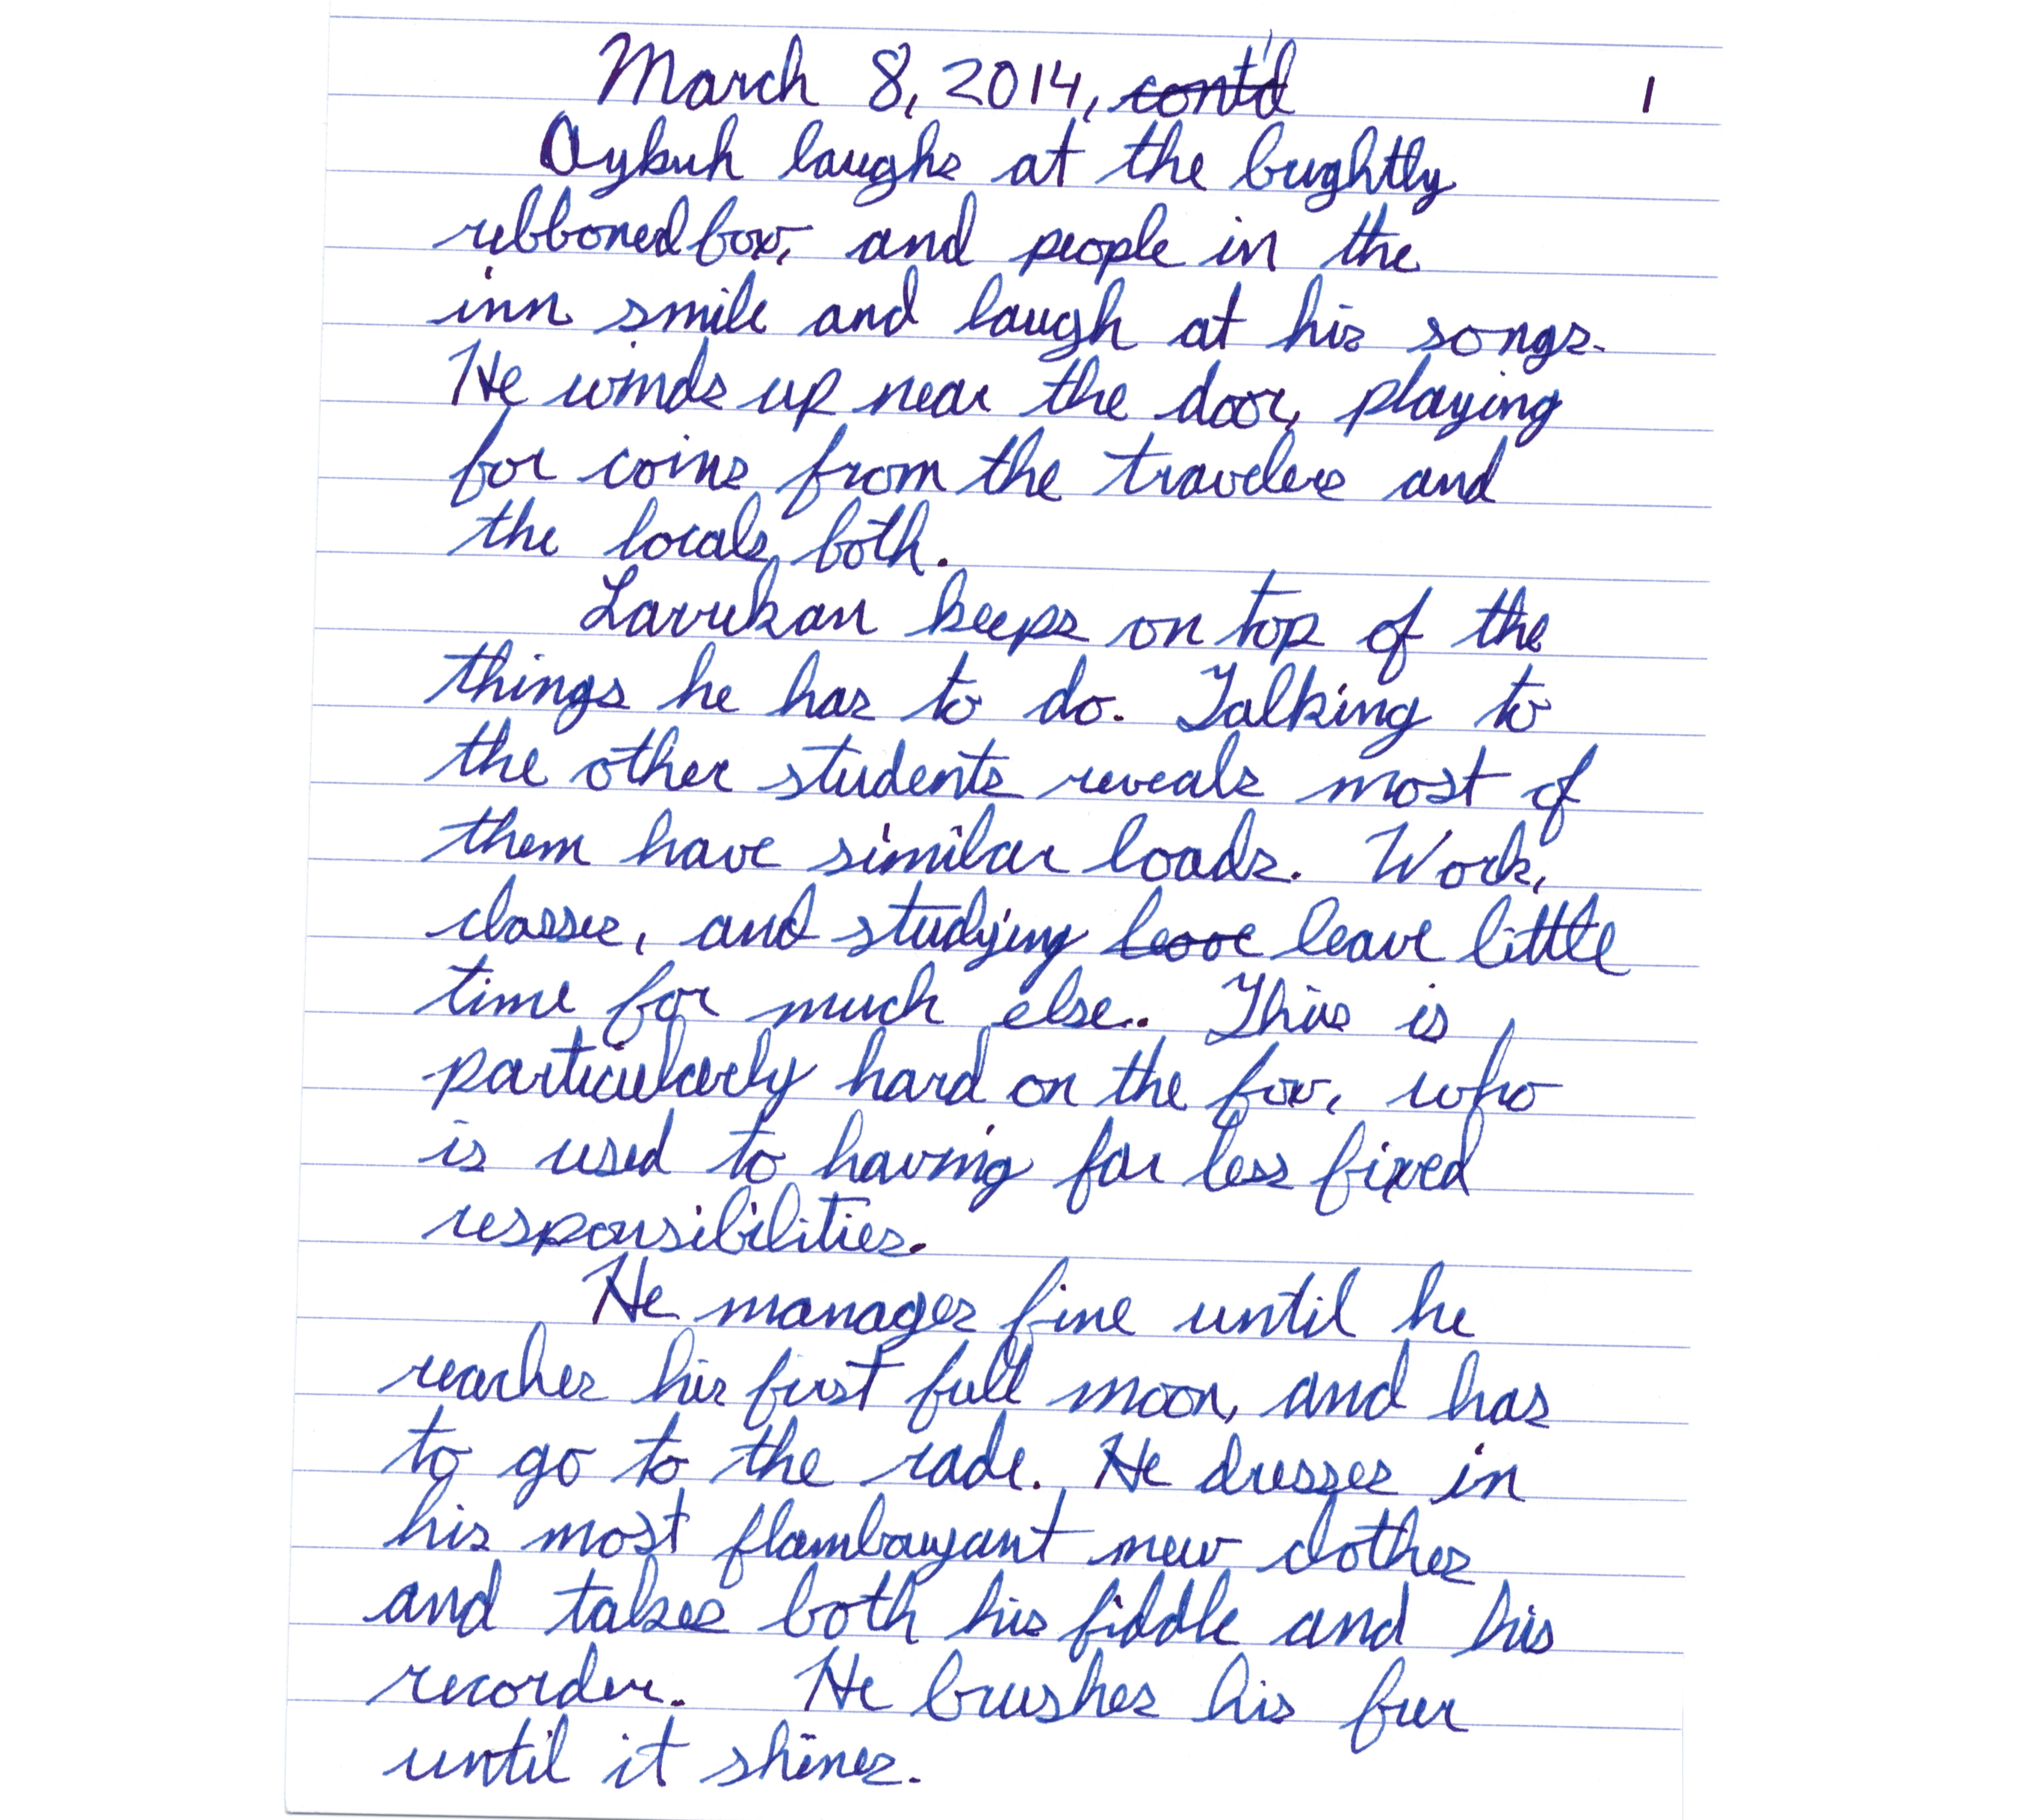 March 8, 2014, cont'd 1
Oybuh laughs at the brightly
ribboned fox, and people in the
inn smile and laugh at his songs.
He winds up near the door, playing
for coins from the travelers and
the locals both.
Lavrekan keeps on top of the
things he has to do. Talking to
the other students reveals most of
them have similar loads. Work,
classes, and studying leave leave little
time for much else. This is
particularly hard on the fox, who
is used to having far less fixed
responsibilities.
He manages fine until he
reaches his first full moon, and has
to go to the rade. He dresses in
his most flamboyant new clothes
and takes both his fiddle and his
recorder. He brushes his fur
until it shines.